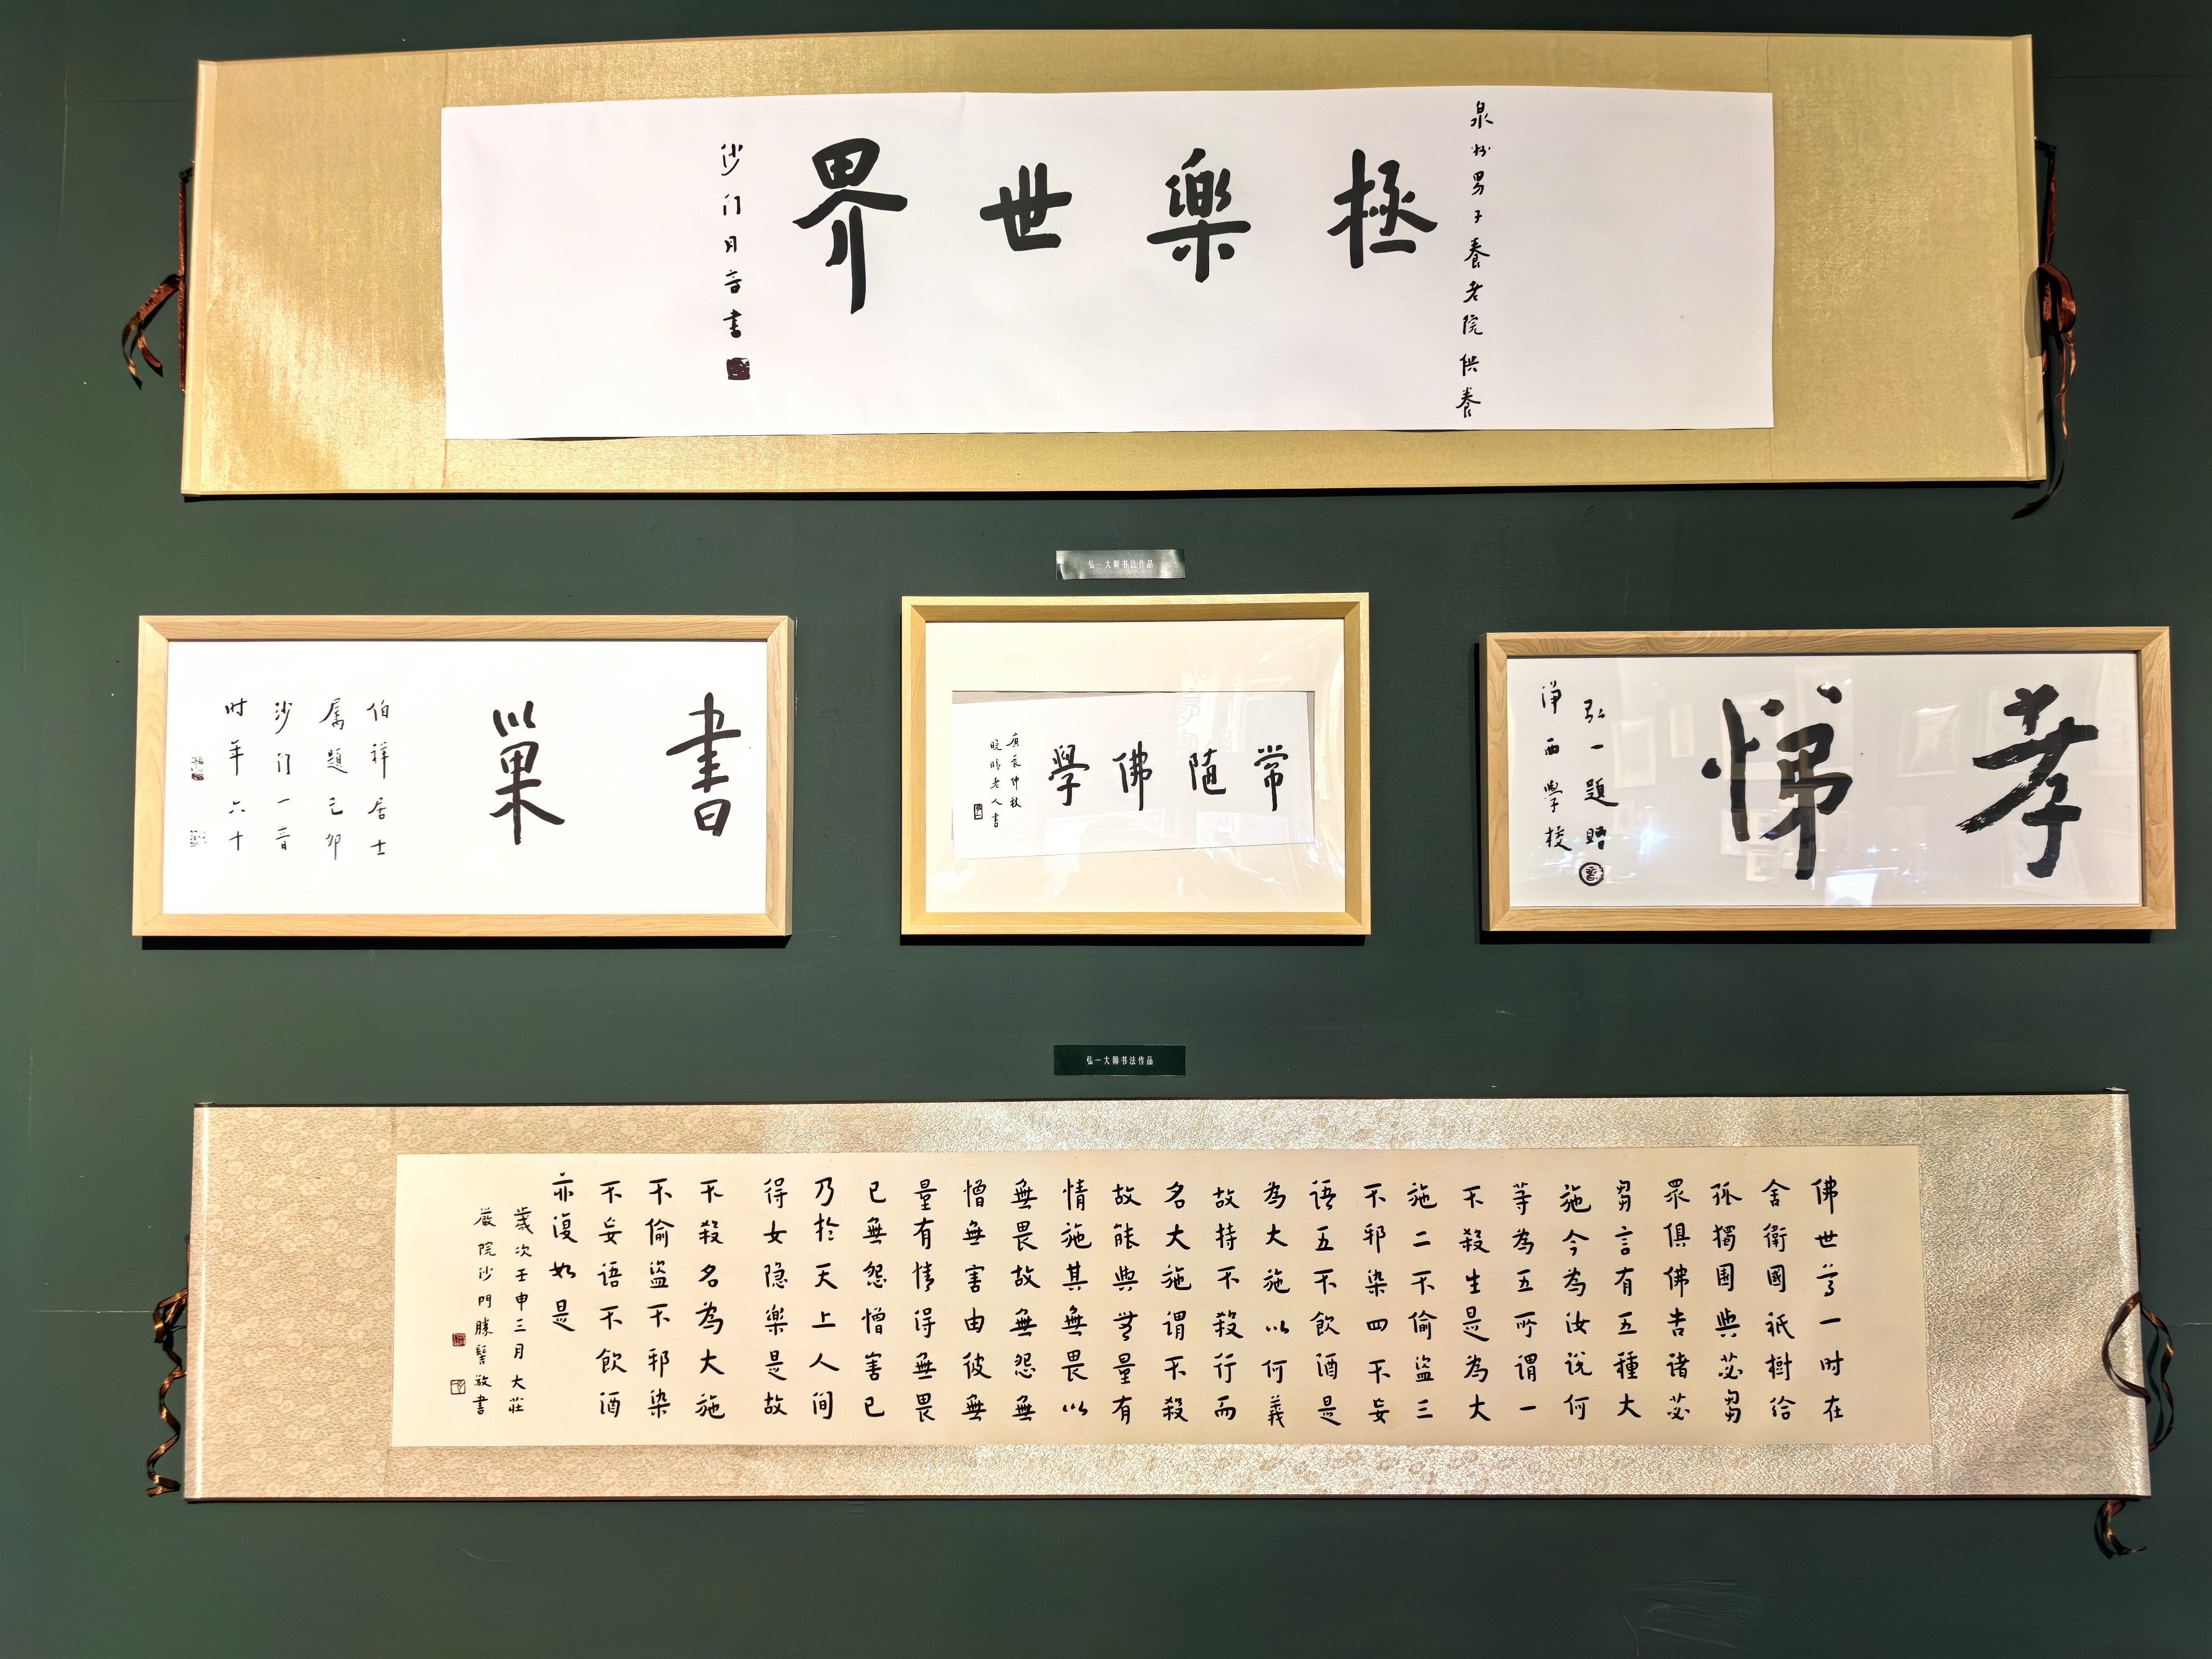 泉州男子養老院供養
極樂世界
沙门月音書
弘一大师书法作品
書巢
伯祥居士
属題己卯
沙门一音
时年六十
常隨佛學
庚辰仲秋
晚晴老人書
孝悌
弘一題贈
淨西學校
弘一大师书法作品
佛世尊一时在
舍衛國祇樹给
孤獨園與苾芻
眾俱佛告诸苾
芻言有五種大
施今為汝说何
等為五所谓一
不殺生是為大
施二不偷盗三
不邪染四不妄
语五不飲酒是
為大施以何義
故持不殺行而
名大施谓不殺
故能與無量有
情施其無畏以
無畏故無怨無
憎無害由彼無
量有情得無畏
已無怨憎害已
乃於天上人间
得安隐樂是故
不殺名為大施
不偷盗不邪染
不妄语不飲酒
亦復如是
歲次壬申三月大莊
嚴院沙門勝髻敬書